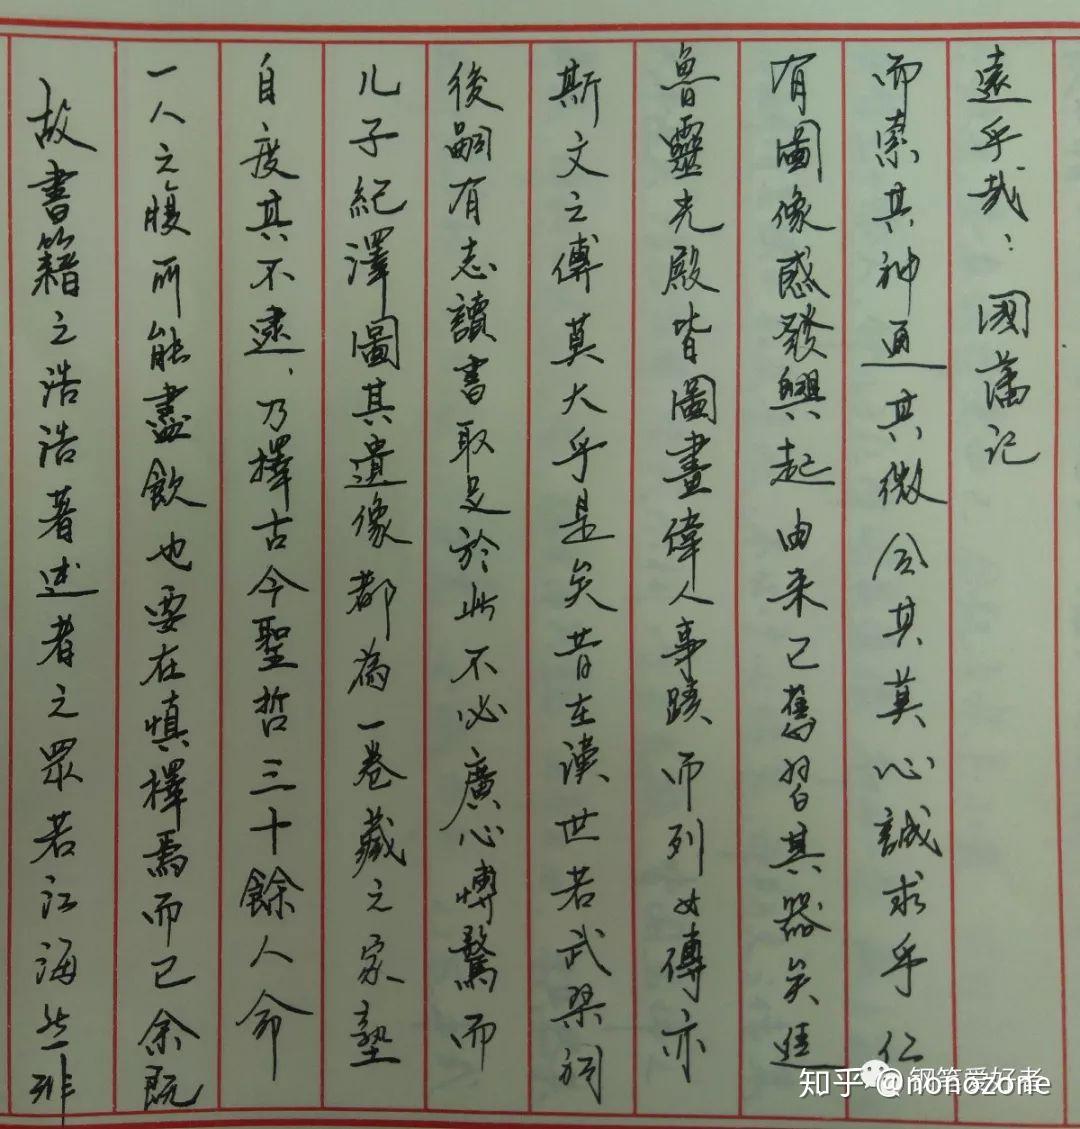 故書籍之浩浩著述者之眾若江海然非
一人之腹所能盡飲也要在慎擇焉而已余既
自度其不逮、乃擇古今聖哲三十餘人命
儿子紀澤圖其遺像都為一卷藏之家塾
後嗣有志讀書取足於此不必廣心博騖而
斯文之傳莫大乎是矣昔在漢世若武梁祠
魯靈光殿皆圖畫偉人事蹟而列女傳亦
有圖像感發興起由来已舊習其器矣進
而索其神通其微合其莫心誠求乎仁
遠乎哉：國藩记
知乎 @nonozone
钢笔爱好者